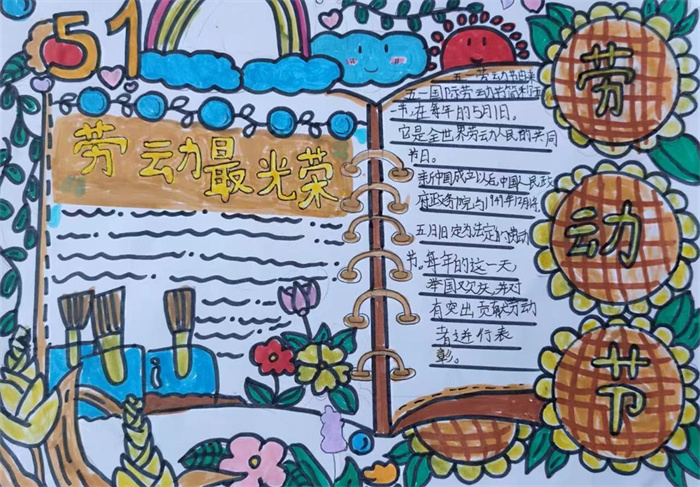 51
劳动最光荣
五一劳动节由来
五一国际劳动节简称
节,在每年的5月1日。
它是全世界劳动人民的共同
节日。
中国成立以后,中国人民政
府政务院于1949年12月
五月1日定为法定的劳动
节。每年的这一天,
举国欢庆,并对
有突出贡献劳动
者进行表
彰。
劳
动
节